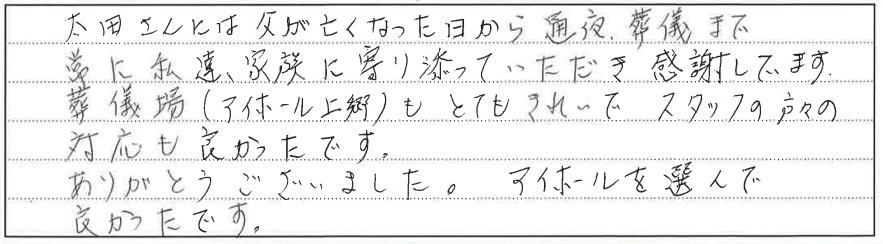 太田さんには父が亡くなった日から通夜、葬儀まで
常に私達、家族に寄り添っていただき感謝してます。
葬儀場(アイホール上郷)もとてもきれいでスタッフの方々の
対応も良かったです。
ありがとうございました。アイホールを選んで
良かったです。